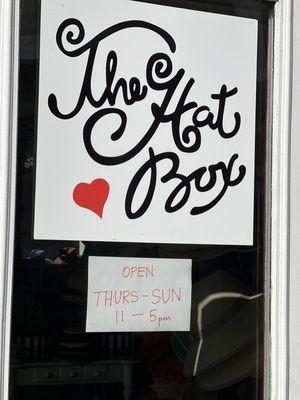 The
Hat
Box
OPEN
THURS-SUN
11-5pm